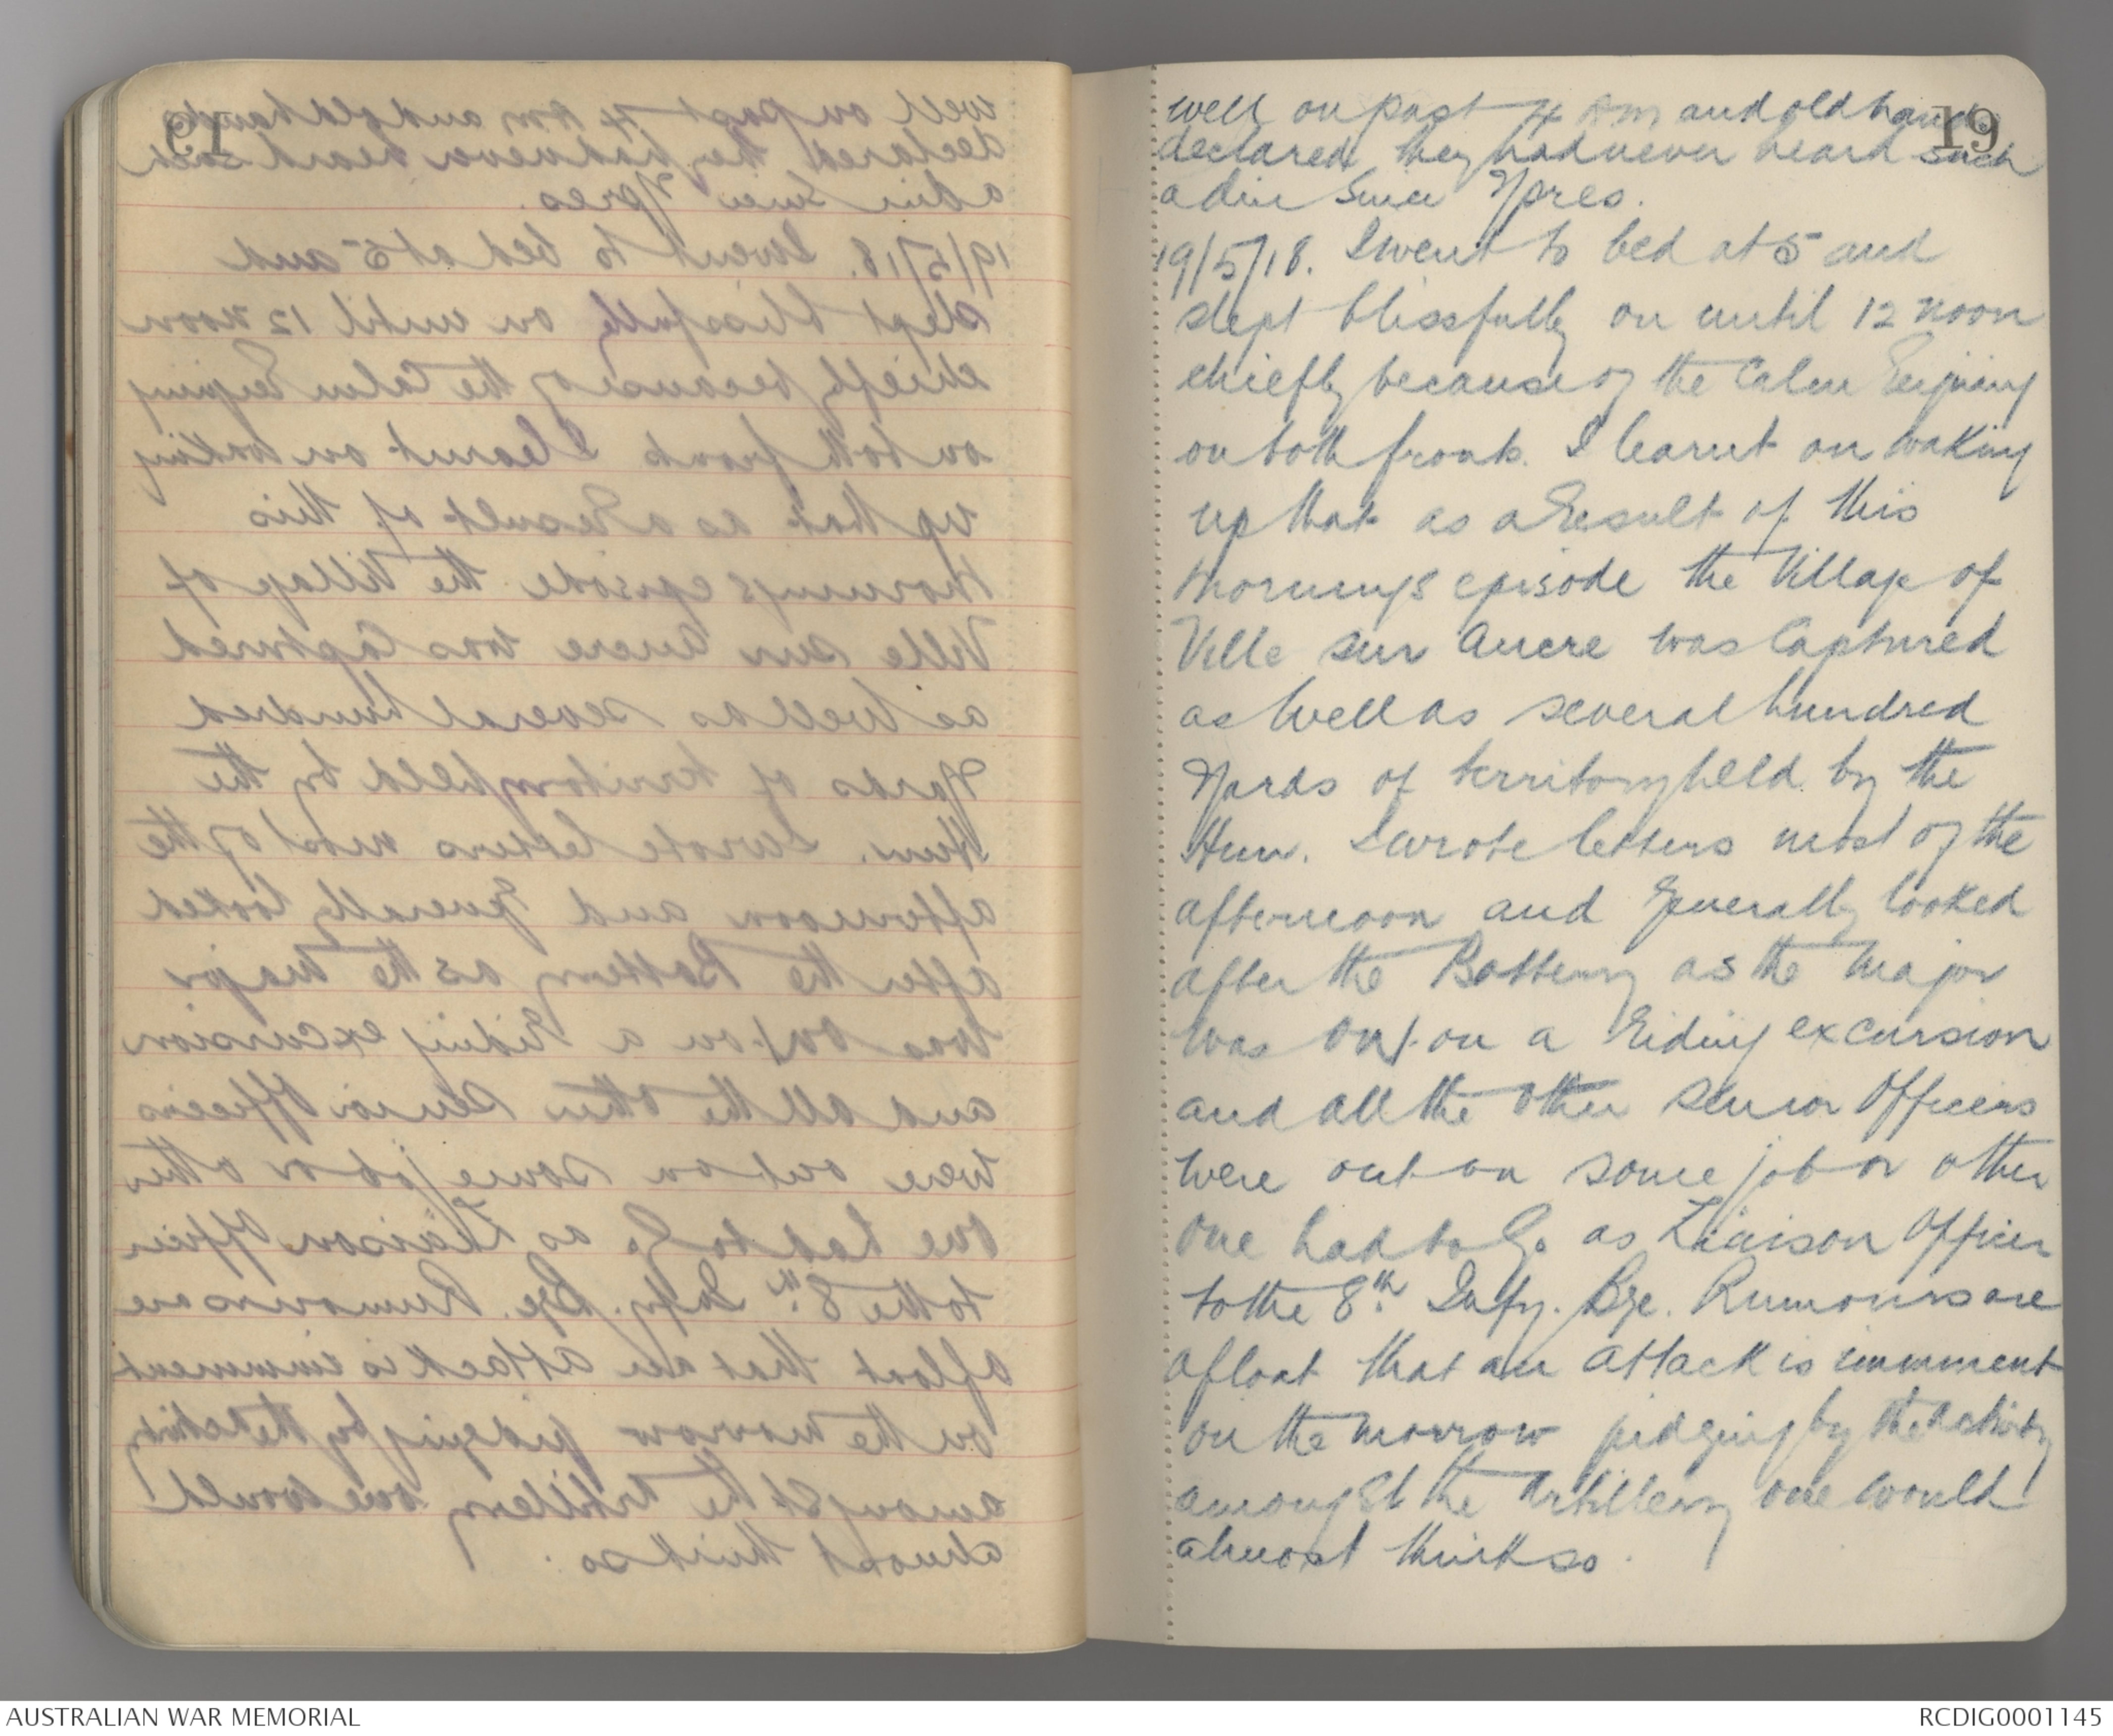 19
well on past 4 am and old hands
declared they had never heard such
a din since Ypres.
19/5/18. I went to bed at 5 and
slept blissfully on until 12 noon
chiefly because of the Calm Reigning
on both fronts. I learnt on waking
up that as a Result of this
mornings episode the Village of
Ville sur Ancre was Captured
as well as several hundred
Yards of territory held by the
Hun. I wrote letters most of the
afternoon and generally looked
after the Battery as the Major
was out on a Riding excursion
and all the other senior Officers
were out on some job or other
One had to Go as Liaison Officer
to the 8th Infy. Bge. Rumours are
afloat that an attack is imminent
on the morrow judging by the activity
amongst the Artillery one would
almost think so.
AUSTRALIAN WAR MEMORIAL
RCDIG0001145